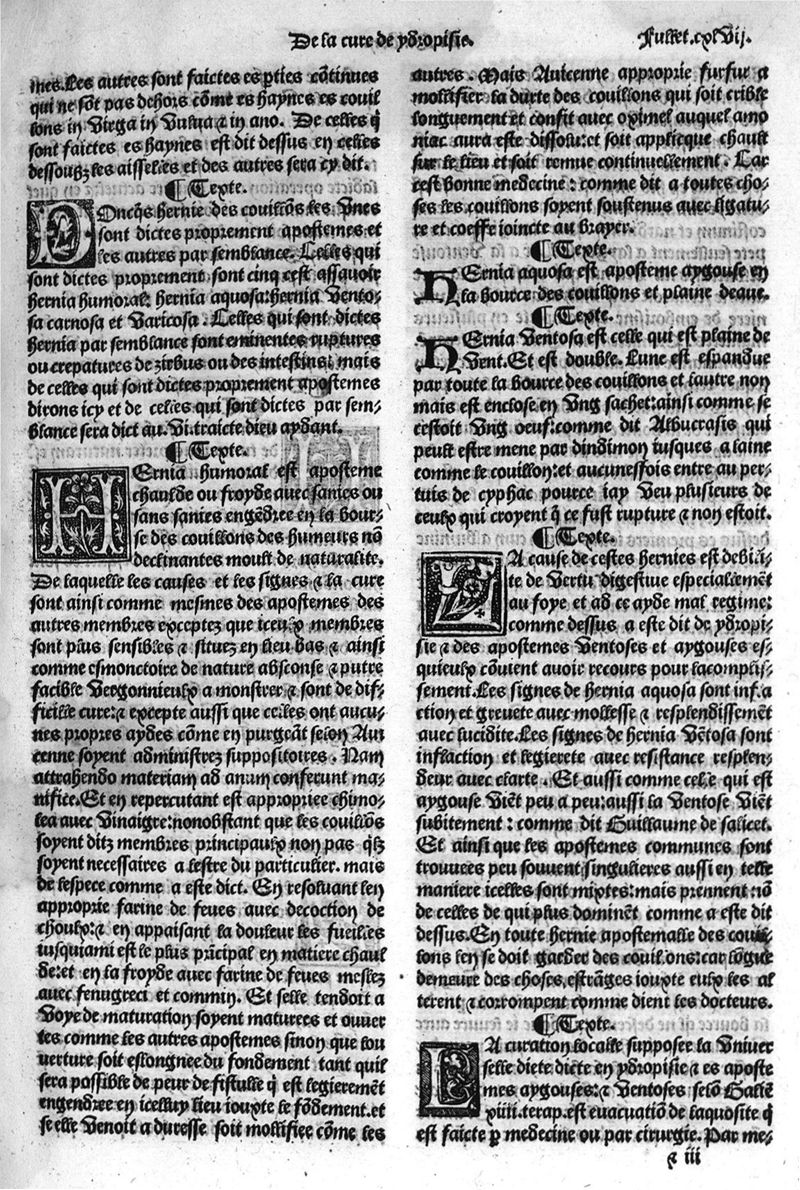 De la cure de ydropisie.
Fullet.cxlvij.
mes.Les autres sont faictes es pties continues
qui ne sōt pas dehors cōme es haynes es couil
lons in virga in vulua ⁊ in ano. De celles q̄
sont faictes es haynes est dit dessus en celles
dessoubz les aisselles et des autres sera cy dit.
¶Texte.
DOncq̄s hernie des couillōs les vnes
sont dictes proprement apostemes et
les autres par semblance. Celles qui
sont dictes proprement sont cinq cest assauoir
hernia humoral; hernia aquosa:hernia vento-
sa carnosa et varicosa. Celles qui sont dictes
hernia par semblance sont eminentes ruptures
ou crepatures de zirbus ou des intestins; mais
de celles qui sont dictes proprement apostemes
dirons icy et de celles qui sont dictes par sem-
blance sera dict au.vi.traicte dieu aydant.
¶Texte.
HErnia humoral est aposteme
chaulde ou froyde auec sanies ou
sans sanies engēdree en la bour-
se des couillons des humeurs nō
declinantes moult de naturalite.
De laquelle les causes et les signes ⁊ la cure
sont ainsi comme mesmes des apostemes des
autres membres exceptez que iceulx membres
sont plus sensibles ⁊ situez en lieu bas ⁊ ainsi
comme esmonctoire de nature absconse ⁊ putre
facible vergonnieulx a monstrer ⁊ sont de dif-
ficille cure:⁊ excepte aussi que celles ont aucu-
nes propres aydes cōme en purgeāt selon Aui
cenne soyent administrez suppositoires. Nam
attrahendo materiam ad anum conferunt ma-
nifice.Et en repercutant est appropriee chimo-
lea auec vinaigre:nonobstant que les couillōs
soyent ditz membres principaulx non pas q̄lz
soyent necessaires a lestre du particulier. mais
de lespece comme a este dict. En resoluant len
approprie farine de feues auec decoction de
choulx:⁊ en appaisant la douleur les fueilles
iusquiami est le plus prīcipal en matiere chaul
de:et en la froyde auec farine de feues meslez
auec fenugreci et commin. Et selle tendoit a
voye de maturation soyent maturees et ouuer
tes comme les autres apostemes sinon que lou
uerture soit eslongnee du fondement tant quil
sera possible de peur de fistulle q̄ est legieremēt
engendree en icelluy lieu iouxte le fōdement.et
se elle venoit a duresse soit mollifiee cōme les
autres. Mais Auicenne approprie furfur a
mollifier la durte des couillons qui soit crible
longuement et confit auec oximel auquel amo
niac aura este dissolu:et soit applicque chault
sur le lieu et soit remue continuellement. Car
cest bonne medecine: comme dit a toutes cho-
ses les couillons soyent soustenus auec ligatu-
re et coeffe ioincte au brayer.
¶Texte.
HErnia aquosa est aposteme aygouse en
la bource des couillons et plaine deaue.
¶Texte.
HErnia ventosa est celle qui est plaine de
vent.Et est double. Lune est espandue
par toute la bource des couillons et lautre non
mais est enclose en vng sachet:ainsi comme se
cestoit vng oeuf:comme dit Albucrasis qui
peult estre mene par dindimon iusques a laine
comme le couillon:et aucunesfois entre au per-
tuis de cyphac pource iay veu plusieurs de
ceulx qui croyent q̄ ce fust rupture ⁊ non estoit.
¶Texte.
LA cause de cestes hernies est debili-
te de vertu digestiue especialemēt
au foye et ad ce ayde mal regime:
comme dessus a este dit de ydropi-
sie ⁊ des apostemes ventoses et aygouses es-
quieulx cōuient auoir recours pour lacomplis-
sement.Les signes de hernia aquosa sont infla
ction et greuete auec mollesse ⁊ resplendissemēt
auec lucidite.Les signes de hernia vētosa sont
inflaction et legierete auec resistance resplen-
deur auec clarte. Et aussi comme celle qui est
aygouse viēt peu a peu:aussi la ventose viēt
subitement: comme dit Guillaume de salicet.
Et ainsi que les apostemes communes sont
trouuees peu souuent singulieres aussi en telle
maniere icelles sont mixtes:mais prennent nō
de celles de qui plus dominēt comme a este dit
dessus.En toute hernie apostemalle des couil-
lons len se doit garder des couillons:car lōgue
demeure des choses estrāges iouxte eulx les al
terent ⁊ corrompent comme dient les docteurs.
¶Texte.
LA curation localle supposee la vniuer
selle diete dicte en ydropisie ⁊ es aposte
mes aygouses:⁊ ventoses selō Galiē
xiiii.terap.est euacuatiō de laquosite q̄
est faicte p medecine ou par cirurgie. Par me-
⁊ iii